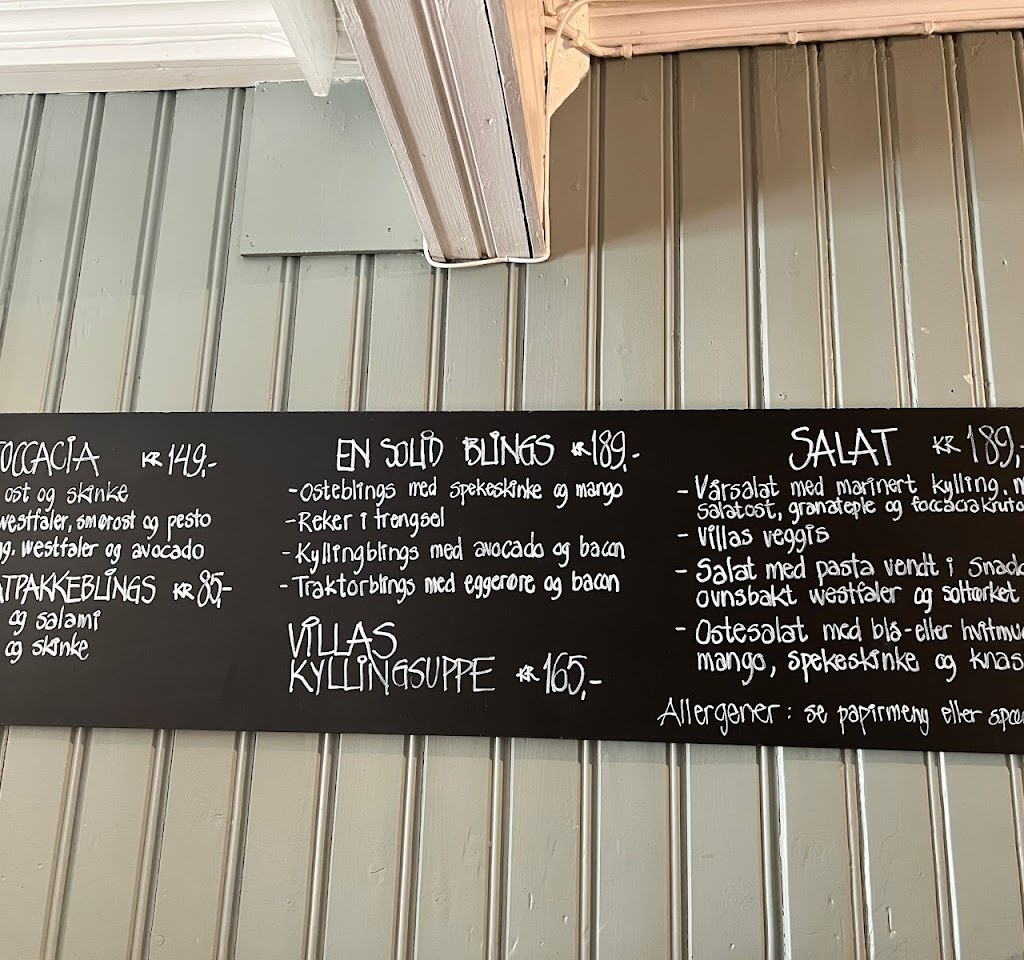 OCCACIA KR 149,-
ost og skinke
westfaler, smørost og pesto
westfaler og avocado
TPAKKEBLINGS KR 85,-
og salami
og skinke
EN SOLID BLINGS KR 189,-
- Osteblings med spekeskinke og mango
- Reker i trengsel
- Kyllingblings med avocado og bacon
- Traktorblings med eggerøre og bacon
VILLAS
KYLLINGSUPPE KR 165,-
SALAT KR 189,-
- Vårsalat med marinert kylling,
salatost, granateple og foccaciakruto
- Villas veggis
- Salat med pasta vendt i snack
ovnsbakt westfaler og soltørket
- Ostesalat med blå- eller hvitmu
mango, spekeskinke og knas
Allergener: se papirmeny eller spø